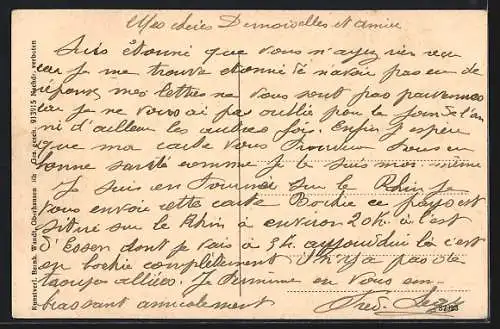 Mes chères Demoiselles et amies
Suis étonné que vous n'ayez rien reçu
car je me trouve étonné de n'avoir pas eu de
réponse, mes lettres ne vous sont pas parvenues
car je ne vous ai pas oublié pour le jour de l'an
ni d'ailleur les autres fois. Enfin j'espère
que ma carte vous trouvera tous en
bonne santé comme je le suis moi-même
Je suis en tournée sur le Rhin je
vous envoie cette carte Bochie ce pays est
situé sur le Rhin à environ 20 K. à l'est
d'Essen dont je vais à 3 h. aujourd'hui là c'est
en bochie complètement il n'y a pas de
troupes alliées. Je termine en vous em-
brassant amicalement Fred.
Kunstverl. Bernh. Wandt, Oberhausen Ges. gesch. 913/15 Nachdr. verboten